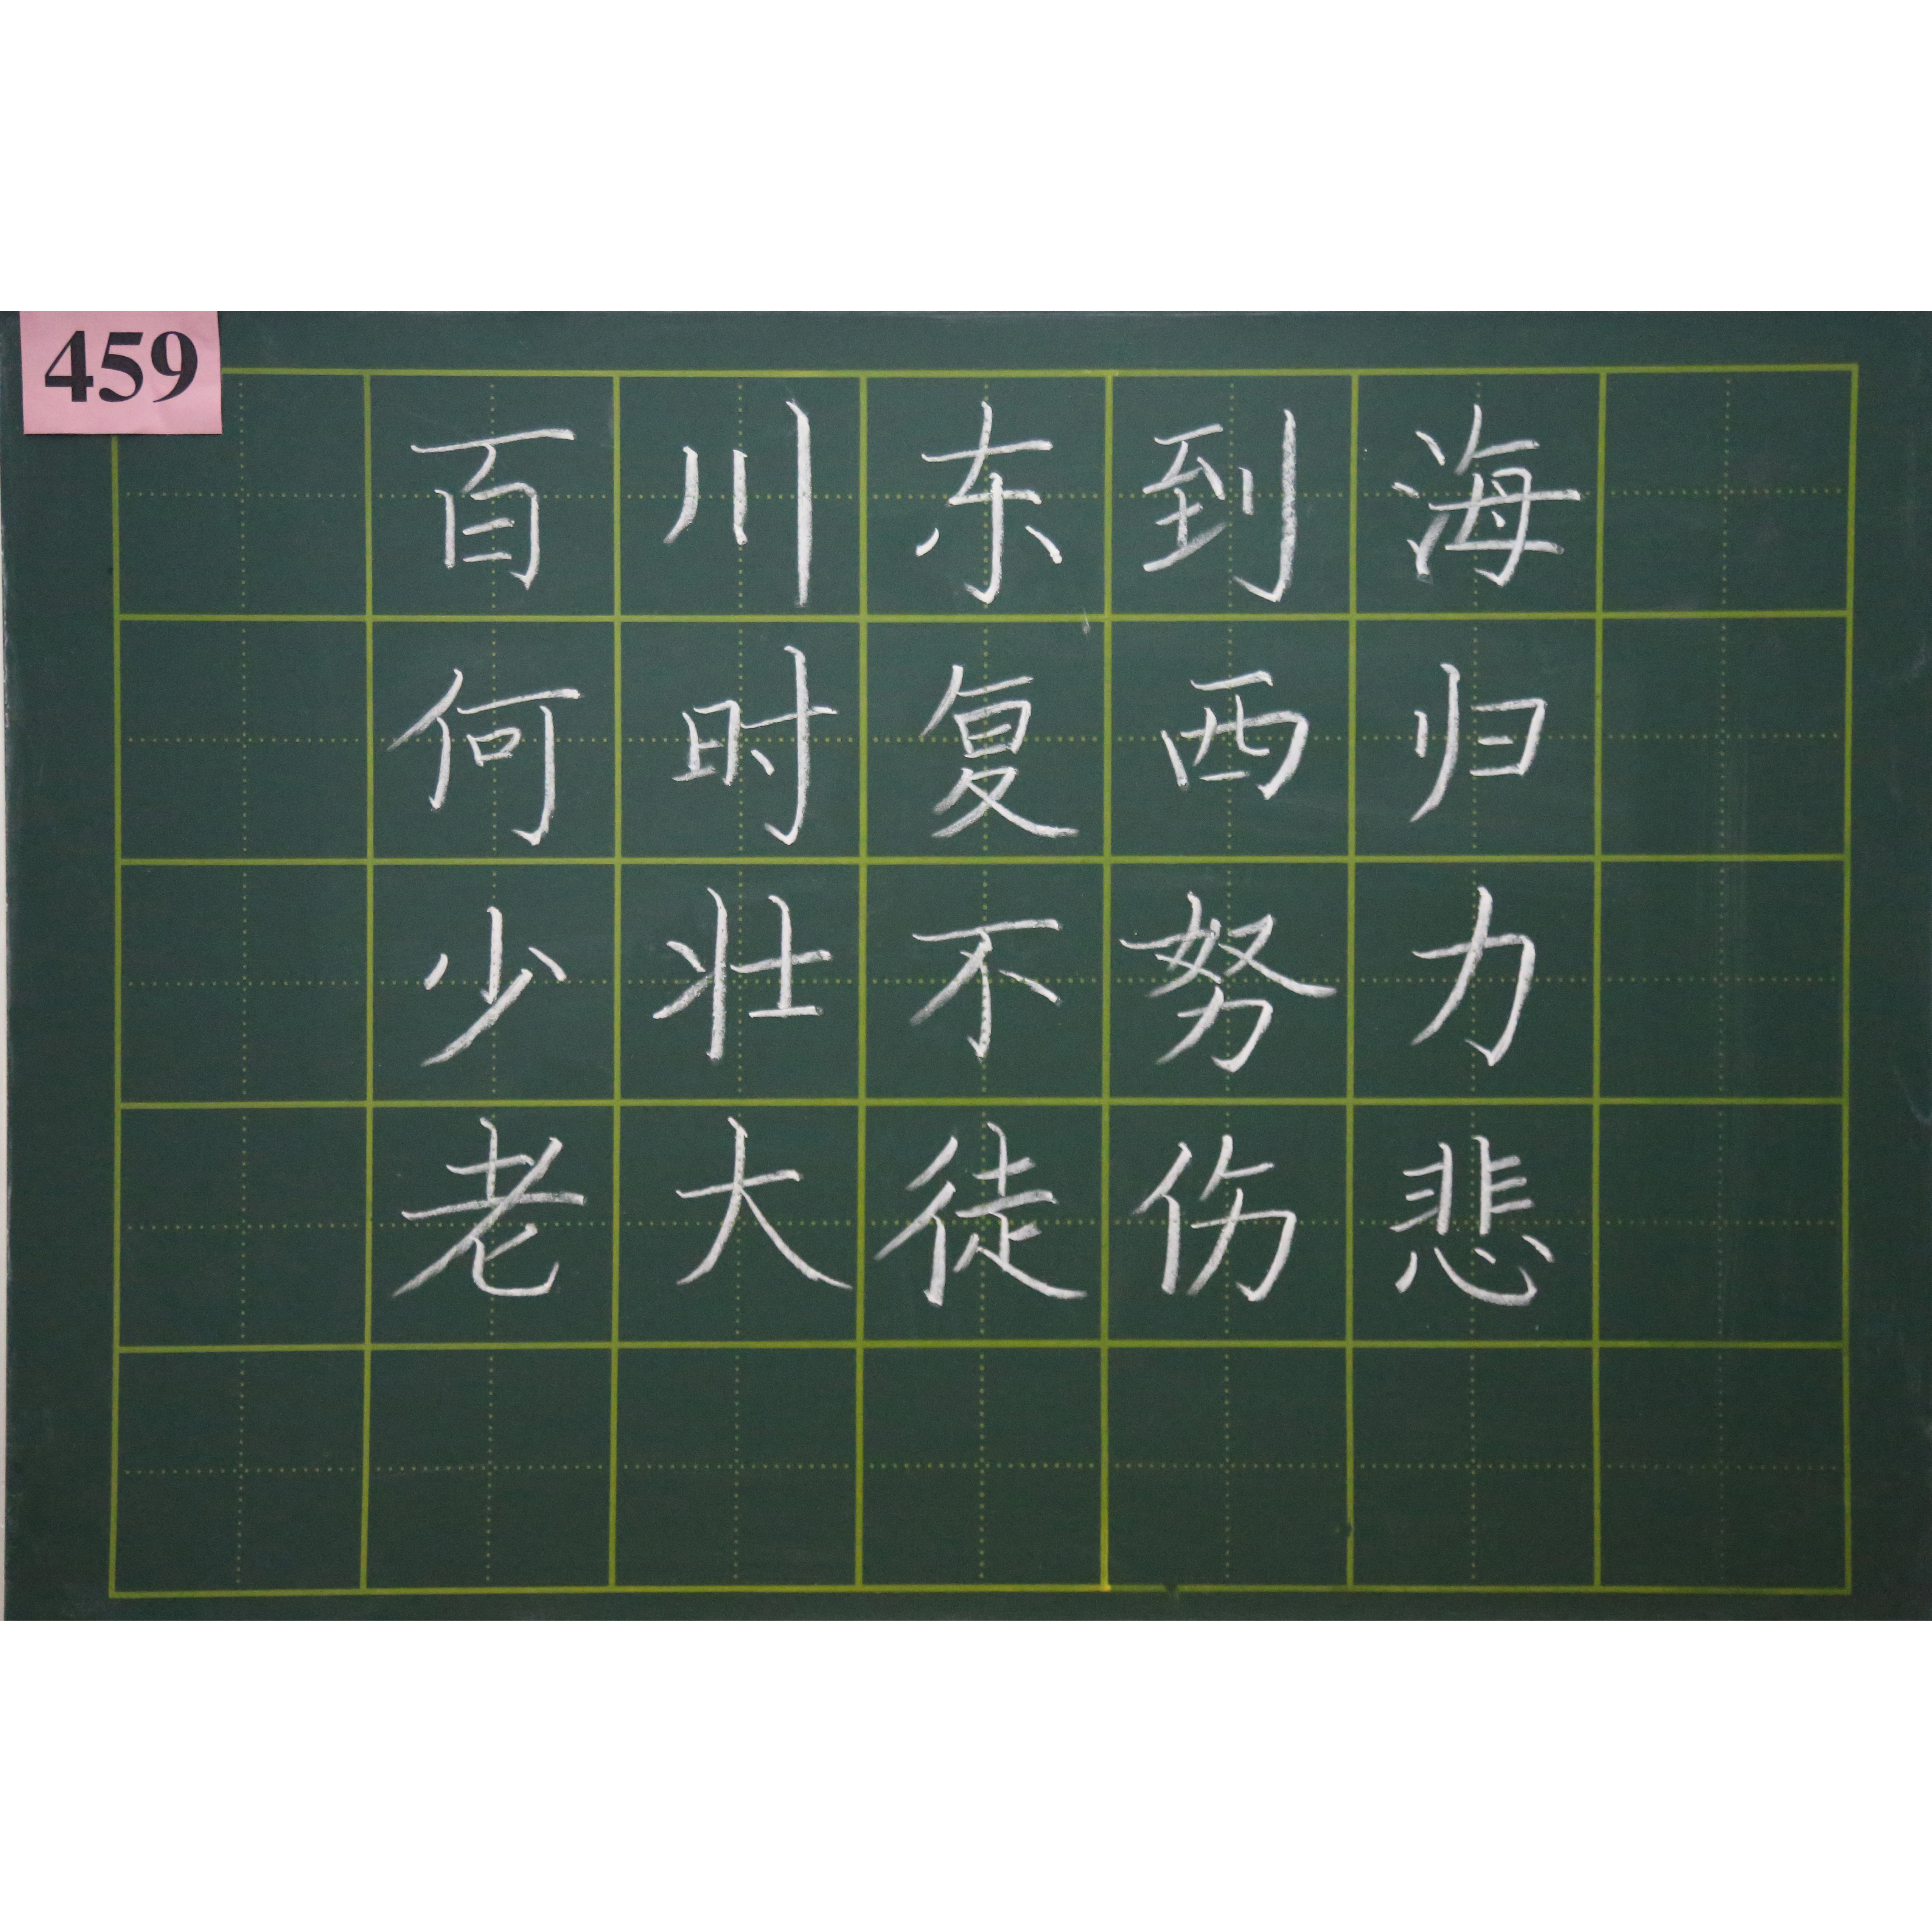 459
百川东到海
何时复西归
少壮不努力
老大徒伤悲